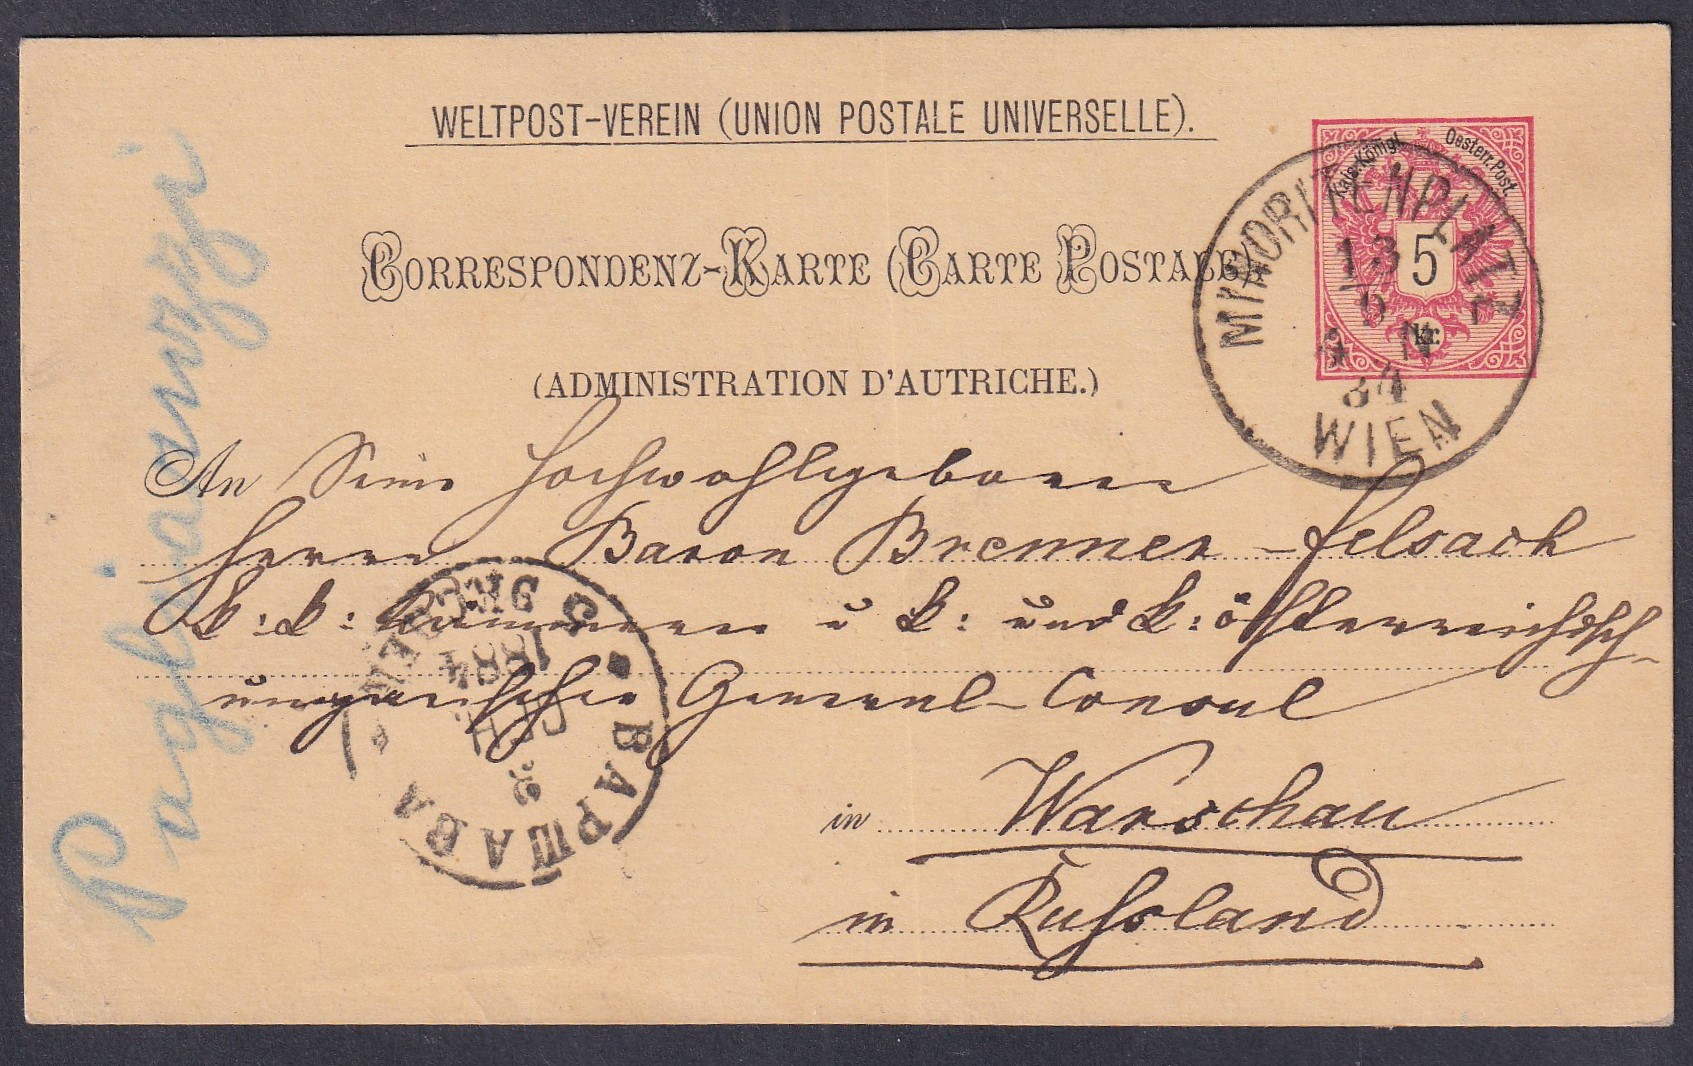 WELTPOST-VEREIN (UNION POSTALE UNIVERSELLE).
Kais. Königl. Oesterr. Post.
5
kr.
MINORITENPLATZ
13
9
N
84
WIEN
CORRESPONDENZ-KARTE (CARTE POSTALE)
(ADMINISTRATION D'AUTRICHE.)
An Seine Hochwohlgeboren
Herrn Baron Brenner-Felsach
k: k: Kämmerer u k: und k: österreichisch-
ungarischer General-Consul
in Warschau
in Rußland
ВАРШАВА
1884
СЕН